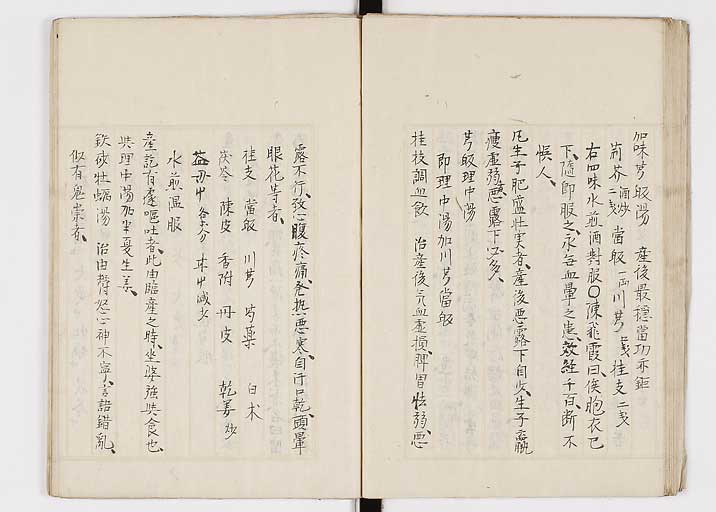 加味芎皈湯　産後最穏當功亦鉅
荊芥二戔酒炒　當皈一両　川芎七戔　桂支二戔
右四味水煎酒對服〇陳飛霞曰俟胞衣已
下、隨即服之、永無血暈之患、效經千百、断不
悞人、
凡生子肥盛壮実者、産後悪露下自少、生子羸
瘦虚弱、悪露下必多、
芎皈理中湯
即理中湯加川芎當皈
桂枝調血飲　治産後气血虚損、脾胃怯弱、悪
露不行、攻心腹疼痛、発熱悪寒、自汗口乾、頭暈
眼花等者、
桂支　當皈　川芎　芍藥　白朮
茯苓　陳皮　香附　丹皮　乾姜炒
益母屮各大　耳屮減半
水煎温服
産訖有遽嘔吐者、此由臨産之時、坐婆強與食也、
與理中湯加半夏生姜、
鉄砂牡蠣湯　治由欝怒、心神不寧、言語錯亂、
似有鬼祟者、